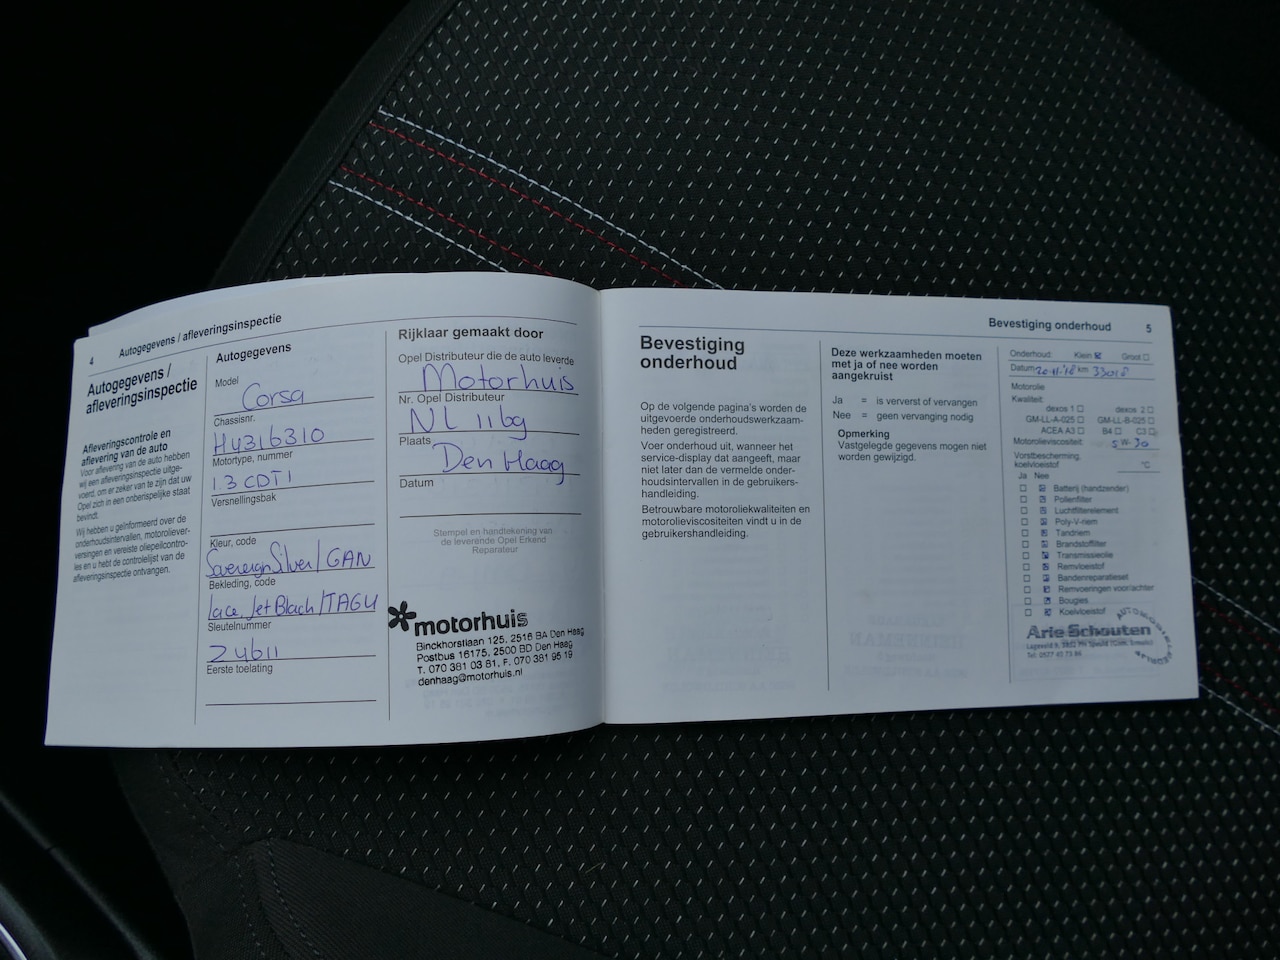 4 Autogegevens / afleveringsinspectie
Autogegevens /
afleveringsinspectie
Afleveringscontrole en
aflevering van de auto
Voor aflevering van de auto hebben
wij een afleveringsinspectie uitge-
voerd, om er zeker van te zijn dat uw
Opel zich in een onberispelijke staat
bevindt.
Wij hebben u geïnformeerd over de
onderhoudsintervallen, motoroliever-
versingen en vereiste oliepeilcontro-
les en u hebt de controlelijst van de
afleveringsinspectie ontvangen.
Autogegevens
Model
Corsa
Chassisnr.
H4316310
Motortype, nummer
1.3 CDTI
Versnellingsbak
Kleur, code
Sovereign Silver / GAN
Bekleding, code
lace, Jet Black / TAGU
Sleutelnummer
Z4611
Eerste toelating
Rijklaar gemaakt door
Opel Distributeur die de auto leverde
Motorhuis
Nr. Opel Distributeur
NL 116g
Plaats
Den Haag
Datum
Stempel en handtekening van
de leverende Opel Erkend
Reparateur
motorhuis
Binckhorstlaan 125, 2516 BA Den Haag
Postbus 16175, 2500 BD Den Haag
T. 070 381 03 81, F. 070 381 95 19
denhaag@motorhuis.nl
Bevestiging onderhoud 5
Bevestiging
onderhoud
Op de volgende pagina's worden de
uitgevoerde onderhoudswerkzaam-
heden geregistreerd.
Voer onderhoud uit, wanneer het
service-display dat aangeeft, maar
niet later dan de vermelde onder-
houdsintervallen in de gebruikers-
handleiding.
Betrouwbare motoroliekwaliteiten en
motorolieviscositeiten vindt u in de
gebruikershandleiding.
Deze werkzaamheden moeten
met ja of nee worden
aangekruist
Ja = is ververst of vervangen
Nee = geen vervanging nodig
Opmerking
Vastgelegde gegevens mogen niet
worden gewijzigd.
Onderhoud: Klein Groot
Datum 20-11-'18 km 33018
Motorolie
Kwaliteit:
dexos 1 dexos 2
GM-LL-A-025 GM-LL-B-025
ACEA A3 B4 C3
Motorolieviscositeit: 5 W- 30
Vorstbescherming,
koelvloeistof °C
Ja Nee
Batterij (handzender)
Pollenfilter
Luchtfilterelement
Poly-V-riem
Tandriem
Brandstoffilter
Transmissieolie
Remvloeistof
Bandenreparatieset
Remvoeringen voor/achter
Bougies
Koelvloeistof
Arie Schouten